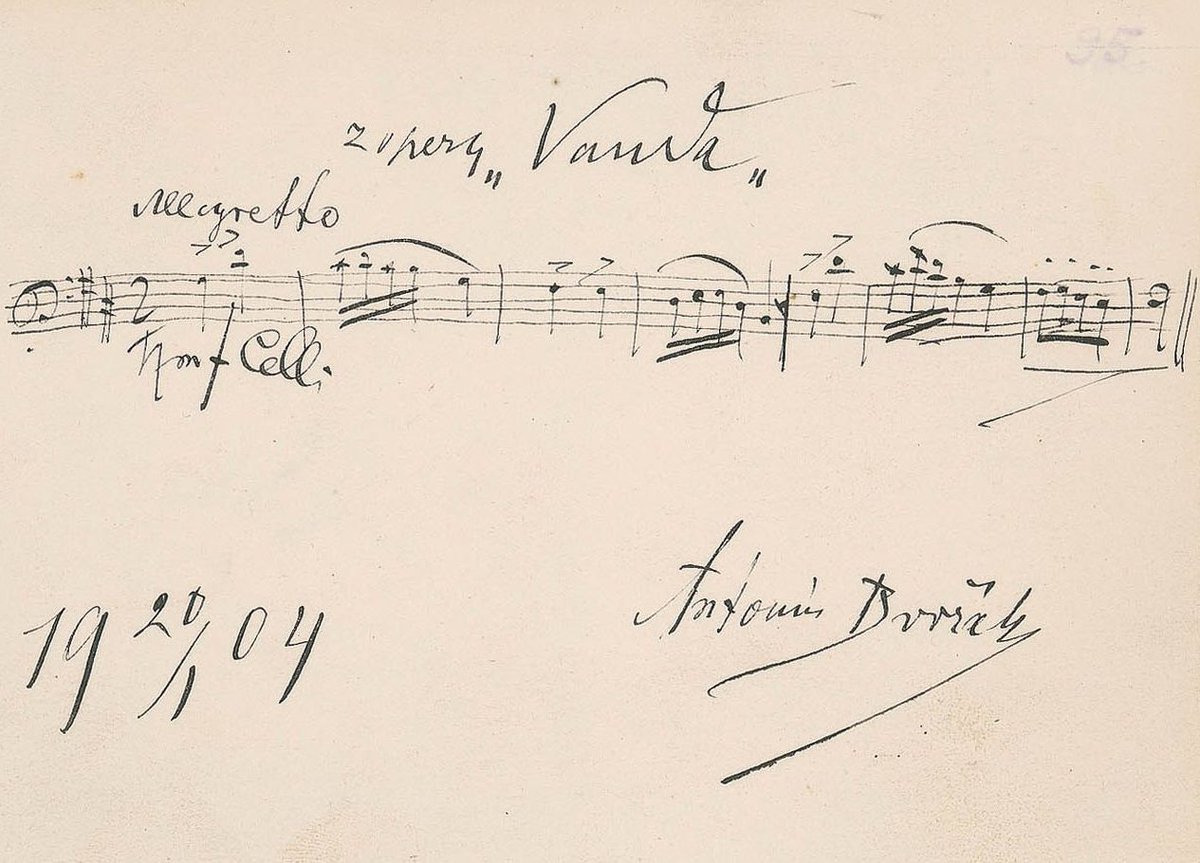 95
z opery „Vanda„
Allegretto
f Celli
19 20/1 04
Antonín Dvořák